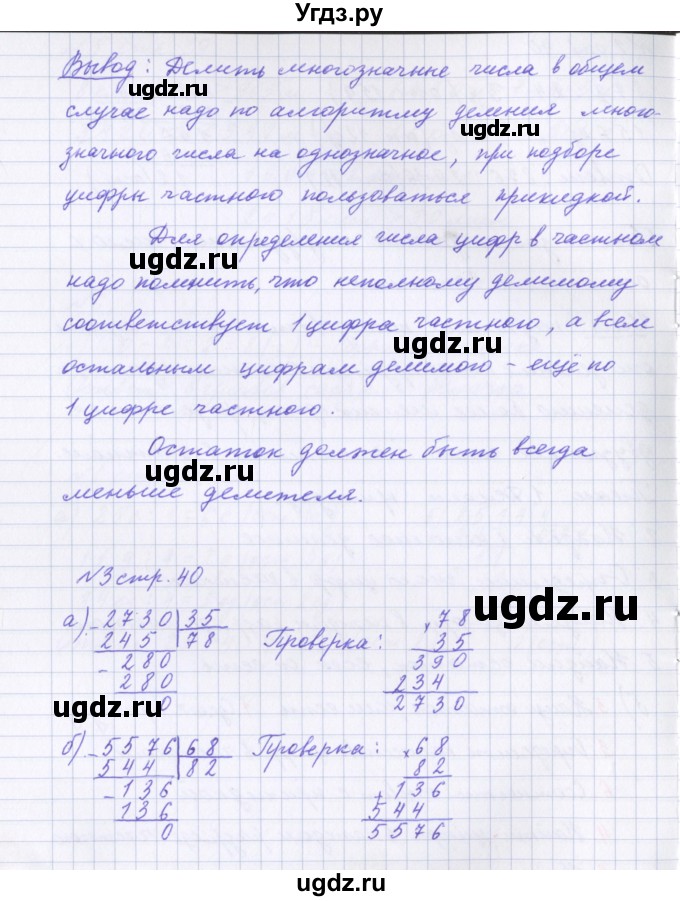 Угдз.ру
Вывод: Делить многозначные числа в общем
ugdz.ru
случае надо по алгоритму деления много-
ugdz.ru
значного числа на однозначное, при подборе
цифры частного пользоваться прикидкой.
Для определения числа цифр в частном
ugdz.ru
надо помнить, что неполному делимому
соответствует 1 цифра частного, а всем
ugdz.ru
остальным цифрам делимого - ещё по
1 цифре частного.
Остаток должен быть всегда
ugdz.ru
меньше делителя.
№3 стр. 40
ugdz.ru
а) - 2730 | 35 Проверка: × 78
245 | 78 35
- 280 390
280 234
0 2730
ugdz.ru
б) - 5576 | 68 Проверка: × 68
544 | 82 82
- 136 + 136
136 544
0 5576
ugdz.ru